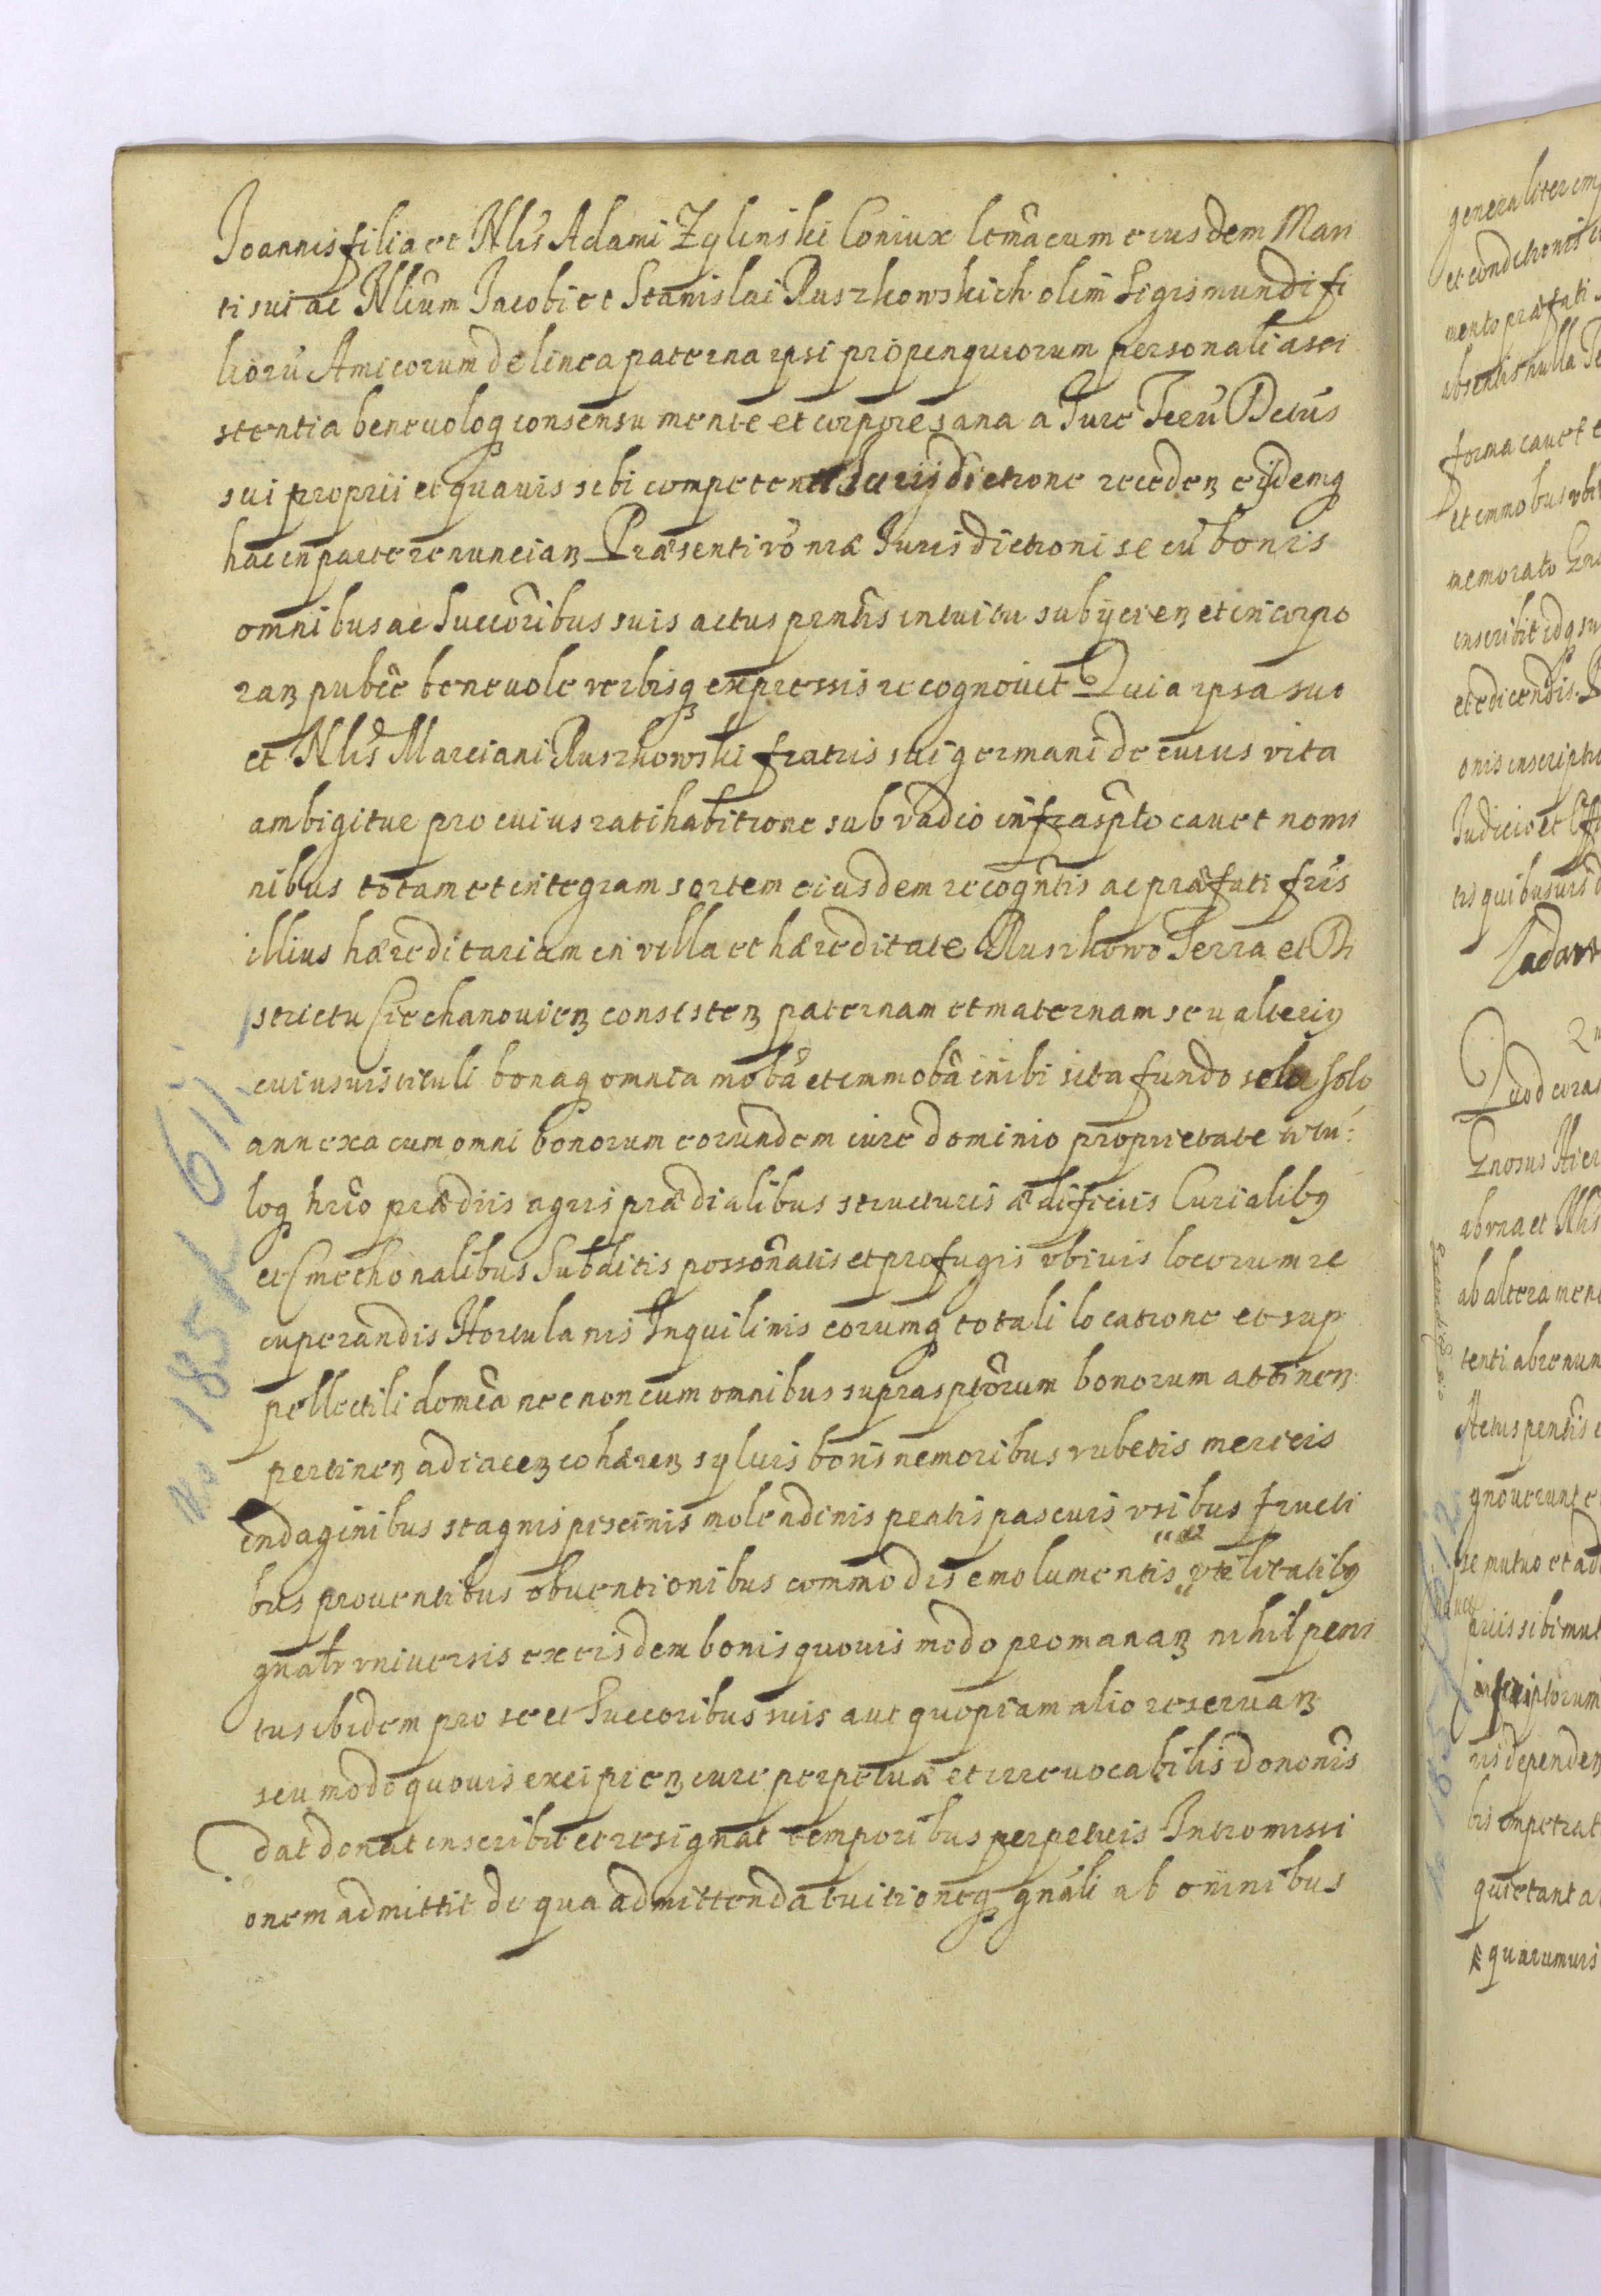 Joannis filia et Nlis Adami Zylinski Coniux lemã cum eiusdem Mari
ti sui ac Nlium Jacobi et Stanislai Ruszkowskich olim Sigismundi fi
liorũ Amicorum de linea paterna ipsi propinquiorum personali assi
stentia beneuoloq consensu mente et corpore sana a Jure Terrũ Dctus
sui proprii et quauis sibi competenti Jurisdictione receden eijdemq
hac in parte renuncian Præsenti võ nræ Jurisdictioni se cũ bonis
omnibus ac Succoribus suis actus prntis intuitu subijcien et incorpo
ran publce beneuole verbisq expressis recognouit Quia ipsa suo
et Nlis Marciani Ruszkowski fratris sui germani de cuius vita
ambigitur pro cuius ratihabitione sub vadio infrasplo cauet nomi
nibus totam et integram sortem eiusdem recogntis ac præfati fris
illius hæreditariam in villa et hæreditate Ruszkowo Terra et Di
strictu Ciechanouien consisten paternam et maternam seu alteriq
cuiusuis tituli bonaq omnia mobã et immobã inibi sita fundo solo
annexa cum omni bonorum eorundem iure dominio proprietate titu:
loq hrio prædiis agris prædialibus structuris ædificiis Curialibq
et Cmethonalibus Subditis possonatis et profugis vbiuis locorum re
cuperandis Hortulanis Inquilinis eorumq totali locatione et sup
pellectili domca nec non cum omnibus suprasptorum bonorum attinen
pertinen adiacen cohæren syluis boris nemoribus rubetis mericis
indaginibus stagnis piscinis molendinis pratis pascuis vsibus fructi
bus prouentibus obuentionibus commodis emolumentis vtilitatibq
gnalr vniuersis ex eisdem bonis quouis modo promanan nihil peni
tus ibidem pro se et Succoribus suis aut quopiam alio reseruan
seu modo quouis excipien iure perpetuæ et irreuocabilis dononis
dat donat inscribit et resignat temporibus perpetuis Intromissi
onem admittit de qua admittenda tuitioneq gnali ab omnibus
No 185 k 611
generaliter
et conditionis
mento præfati
absentis nulla
forma cauet
et immobus
memorato
inscribit idq su
et edicendis
onis inscriptio
Judicio et
tis quibusuis
2
Quod cora
Gnosus
ab vna et Nlis
ab altera
tenti abrenun
Actus prentis
gnouerunt
se mutuo et ad
sibi mut
ris dependen
bis impetrat
quietant a
quarumuis